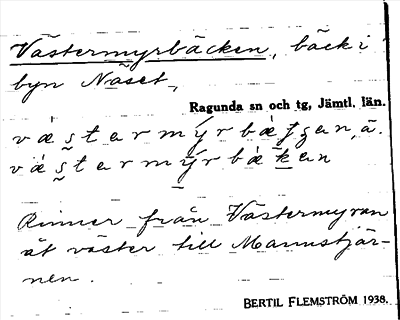 Västermyrbäcken, bäck i
byn Näset,
Ragunda sn och tg, Jämtl. län.
Rinner från Västermyran
åt väster till Mannstjär-
nen.
BERTIL FLEMSTRÖM 1938.